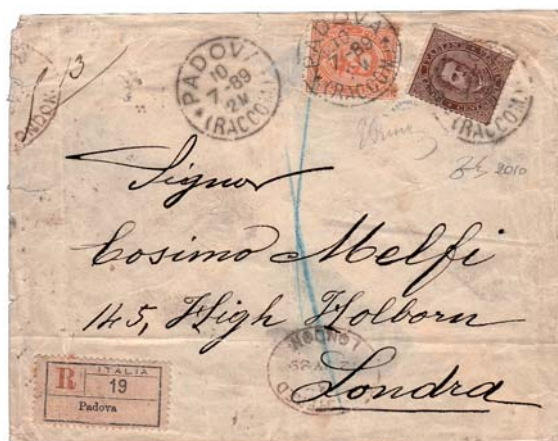 PADOVA
10
7-89
2M
*(RACCOM)*
PADOVA
10
7-89
*(RACCOM)*
(RACCOM)
13
2010
Signor
Cosimo Melfi
145, High Holborn
Londra
LONDON
R
ITALIA
19
Padova